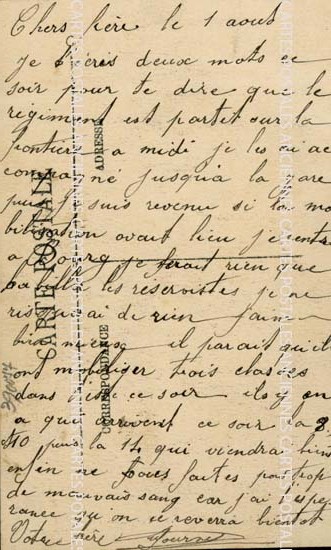 Chers frère le 1 aout
je t'écris deux mots ce
soir pour te dire que le
régiment est partet sur la
frontière a midi je les ai ac
compagné jusquia la gare
puis je suis revenu si la mo
bilisation avait lieu je
a je ferait rien que
les reservistes je ne
risquerai de rien
bien mieux il parait qu'il
ont mobiliser trois classes
dans ce soir ils y en
a qui arrivent ce soir la 8
10 puis la 14 qui viendra bien
enfin ne vous faites pas trop
de mauvais sang car j'ai l'espe
rance qu'on se reverra bientot
Votre frère
CARTE POSTALE
CORRESPONDANCE
ADRESSE